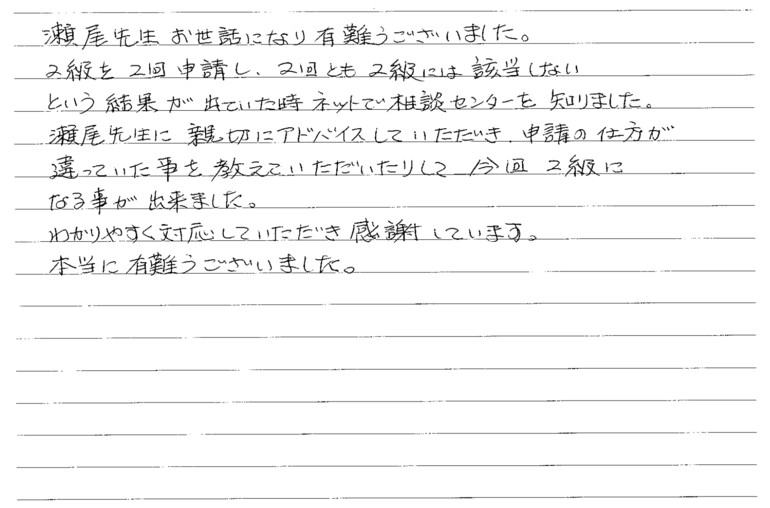 瀬尾先生お世話になり有難うございました。
2級を2回申請し、2回とも2級には該当しない
という結果が出ていた時ネットで相談センターを知りました。
瀬尾先生に親切にアドバイスしていただき、申請の仕方が
違っていた事を教えていただいたりして今回2級に
なる事が出来ました。
わかりやすく対応していただき感謝しています。
本当に有難うございました。